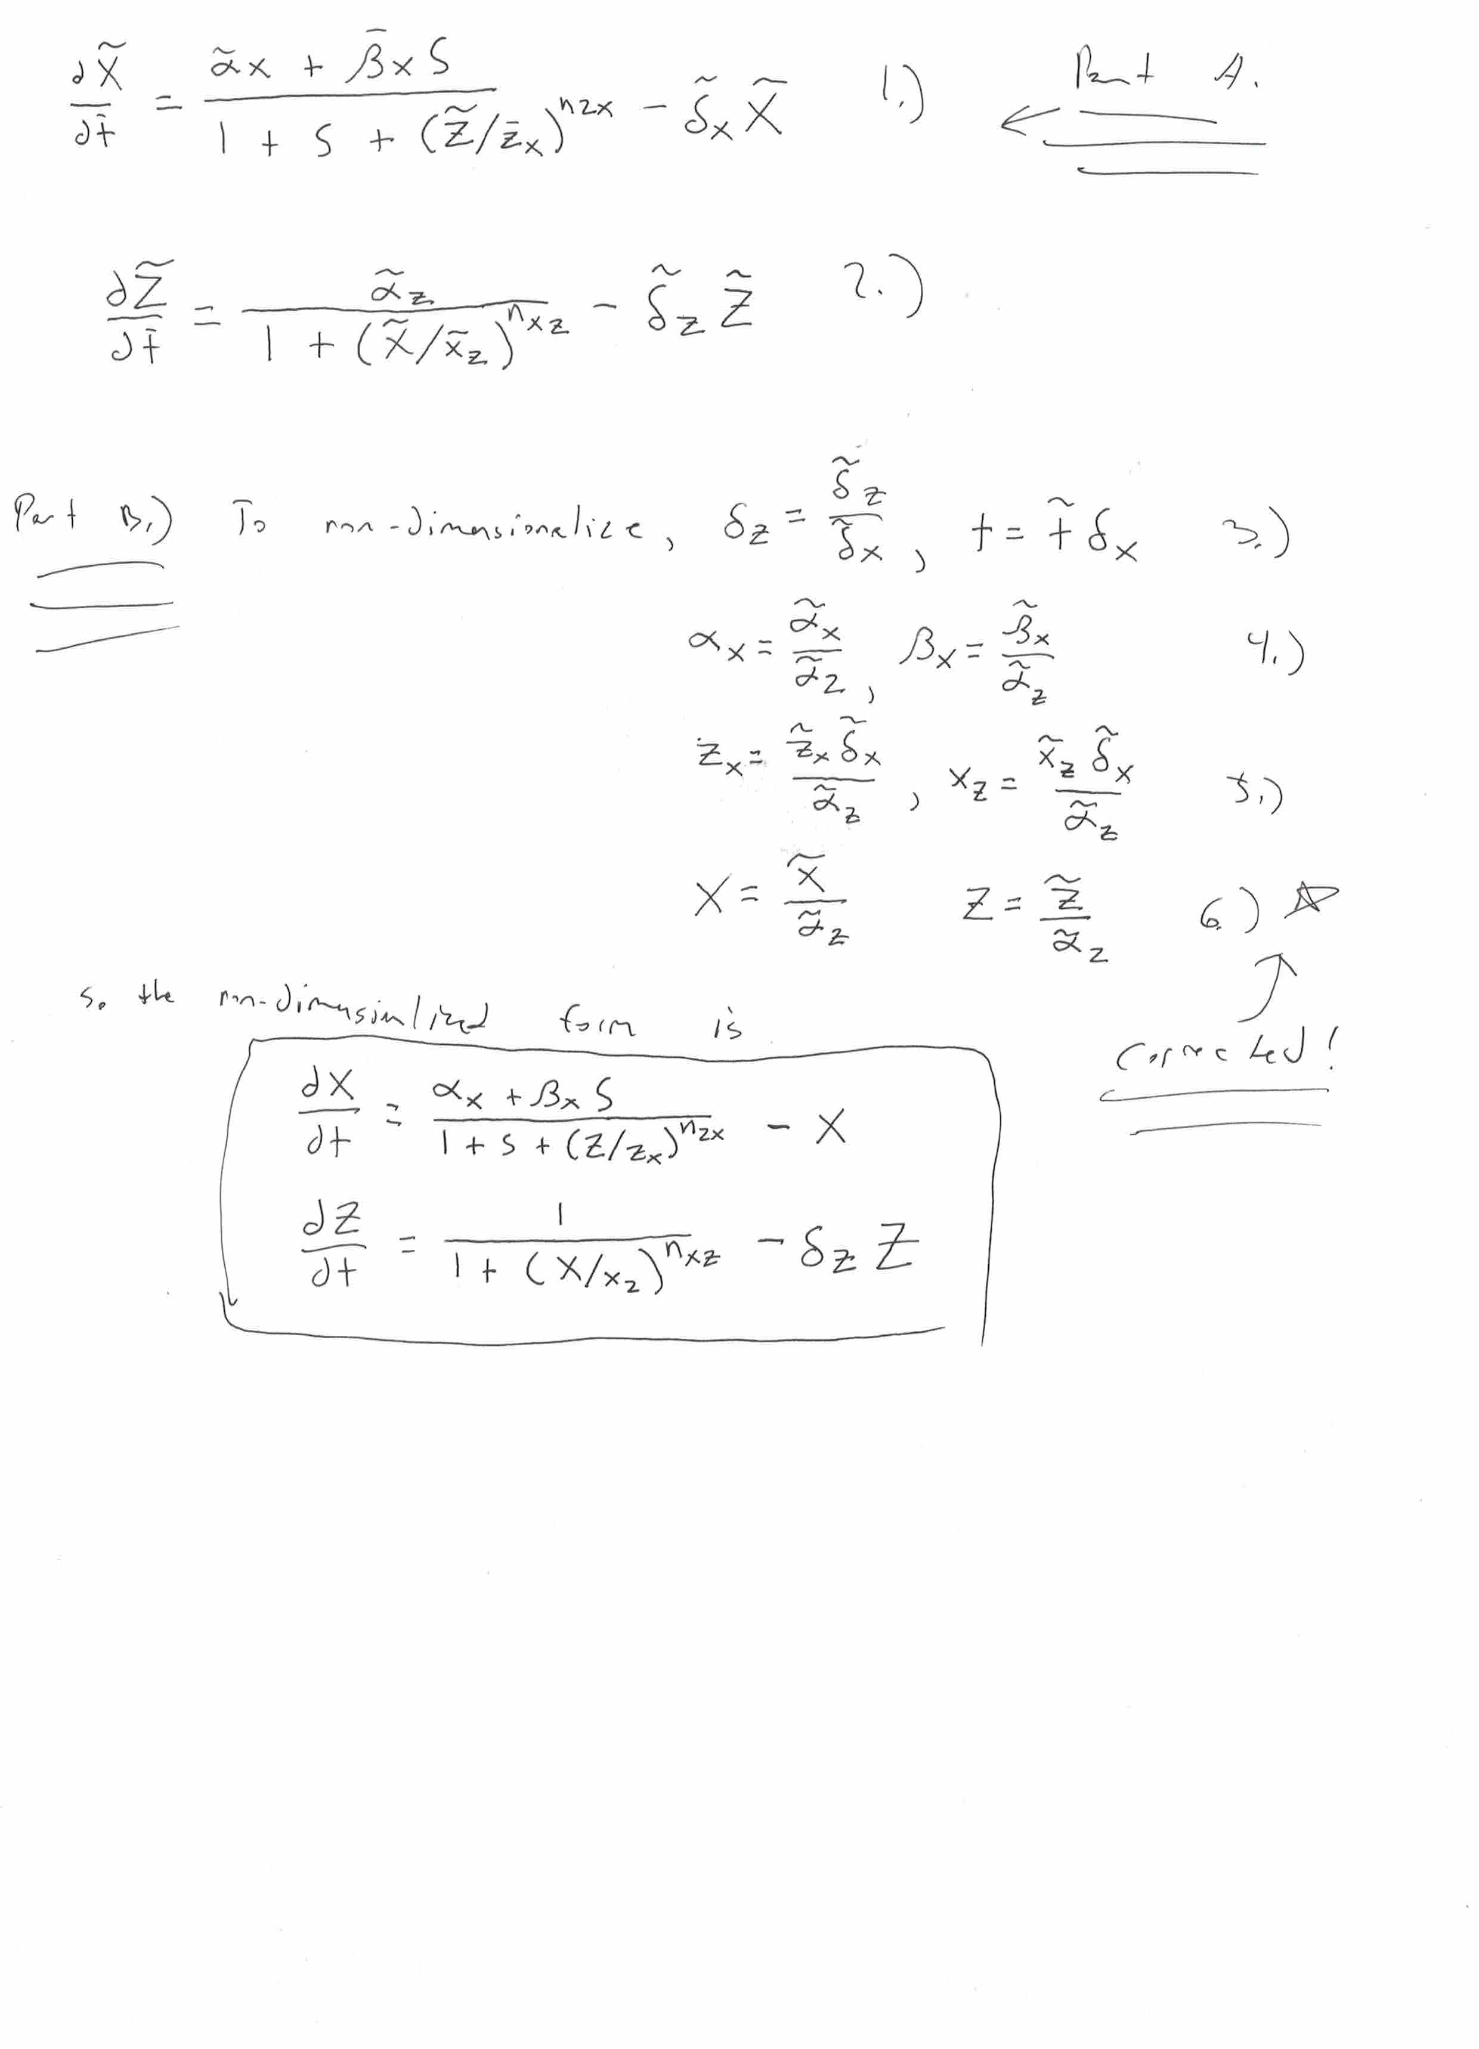 dX̃/dt̄ = (α̃x + β̄x S)/(1 + S + (Z̃/z̄x)^nzx) − δ̃x X̃ 1.) ← Part A.
dZ̃/dt̄ = α̃z/(1 + (X̃/x̃z)^nxz) − δ̃z Z̃ 2.)
Part B.) To non-dimensionalize, δz = δ̃z/δ̃x, t = t̃ δx 3.)
αx = α̃x/α̃z, βx = β̃x/α̃z 4.)
zx = z̃x δ̃x/α̃z, xz = x̃z δ̃x/α̃z 5.)
X = X̃/α̃z Z = Z̃/α̃z 6.) ☆
↑
Corrected!
so the non-dimensionlized form is
dX/dt = (αx + βx S)/(1 + S + (Z/zx)^nzx) − X
dZ/dt = 1/(1 + (X/xz)^nxz) − δz Z